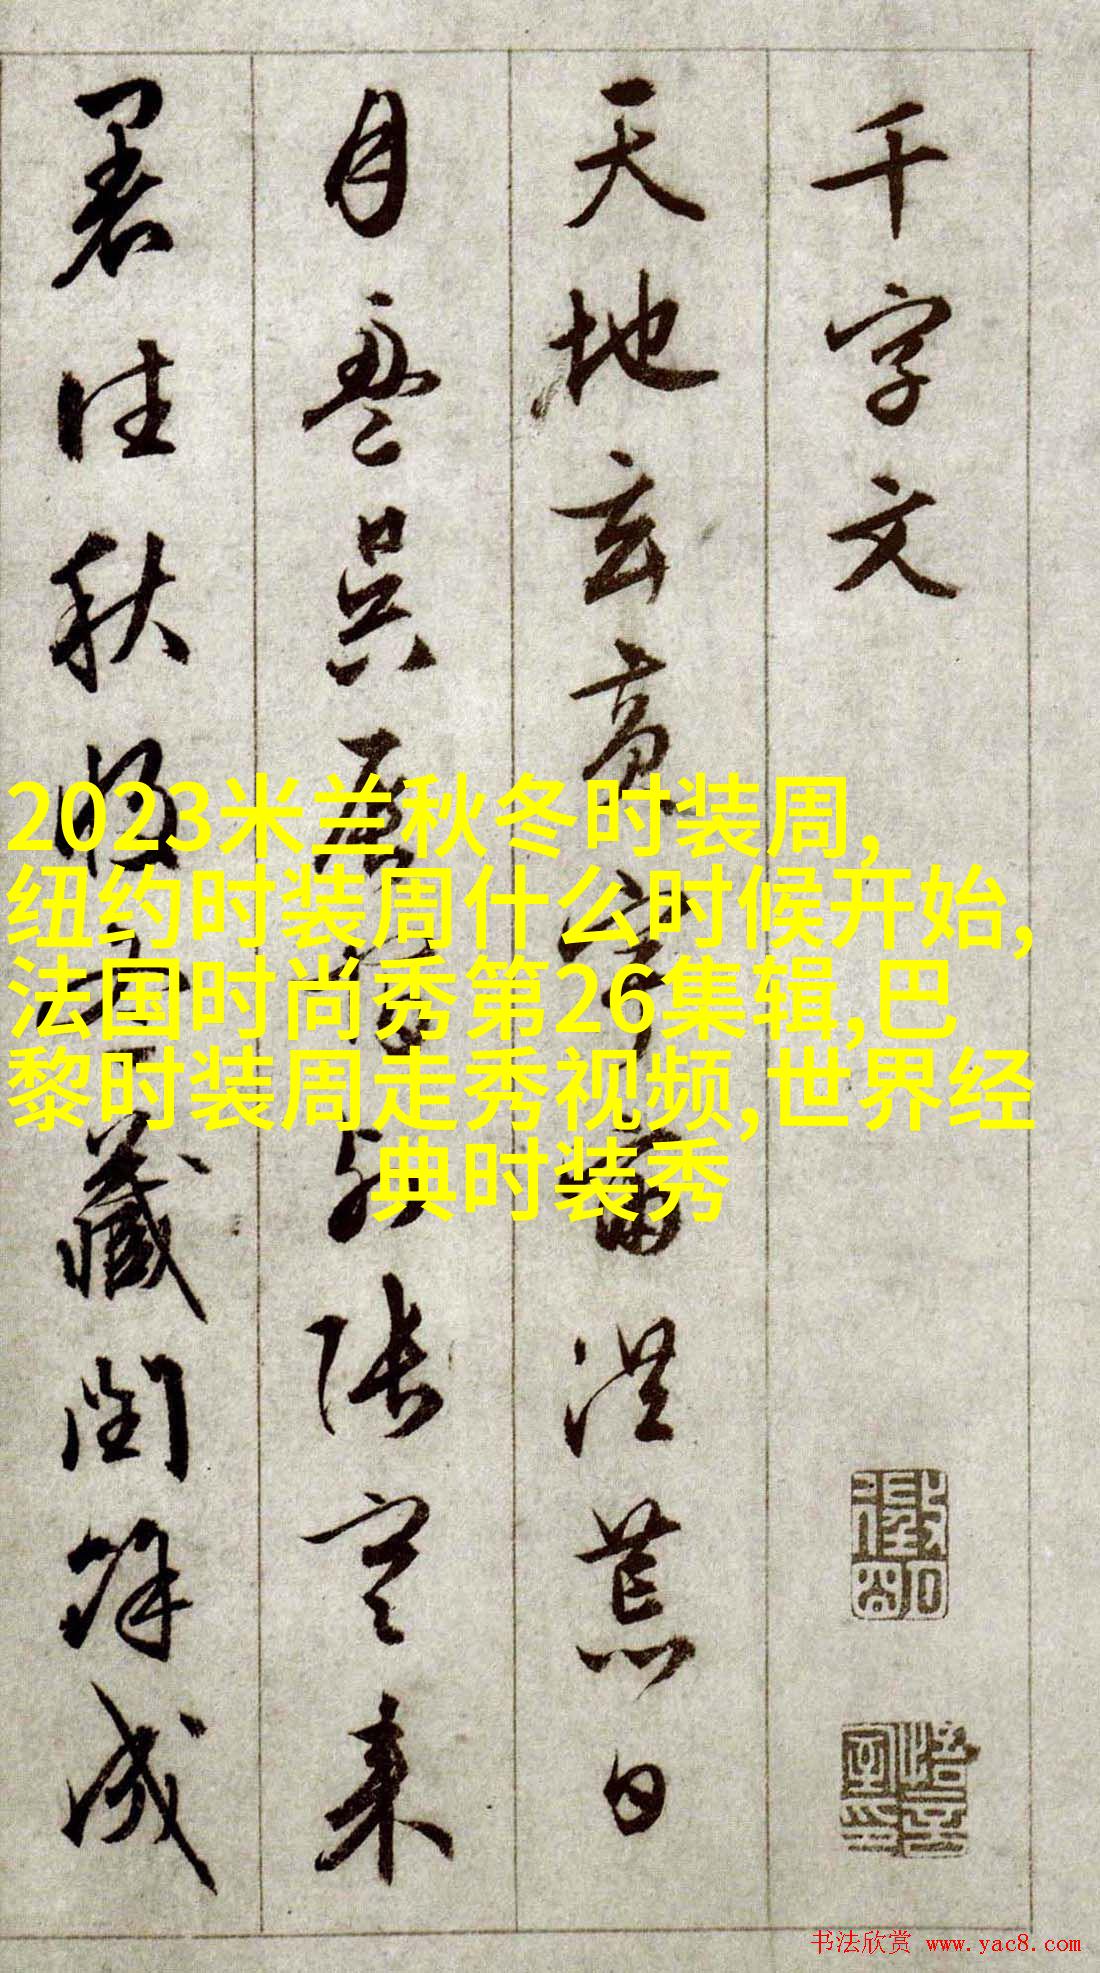 千字文
天地玄黄宇宙洪荒日
月盈昃辰宿列张寒来
暑往秋收冬藏闰馀成
2023米兰秋冬时装周,
纽约时装周什么时候开始,
法国时尚秀第26集辑,巴
黎时装周走秀视频,世界经
典时装秀
书法欣赏 www.yac8.com